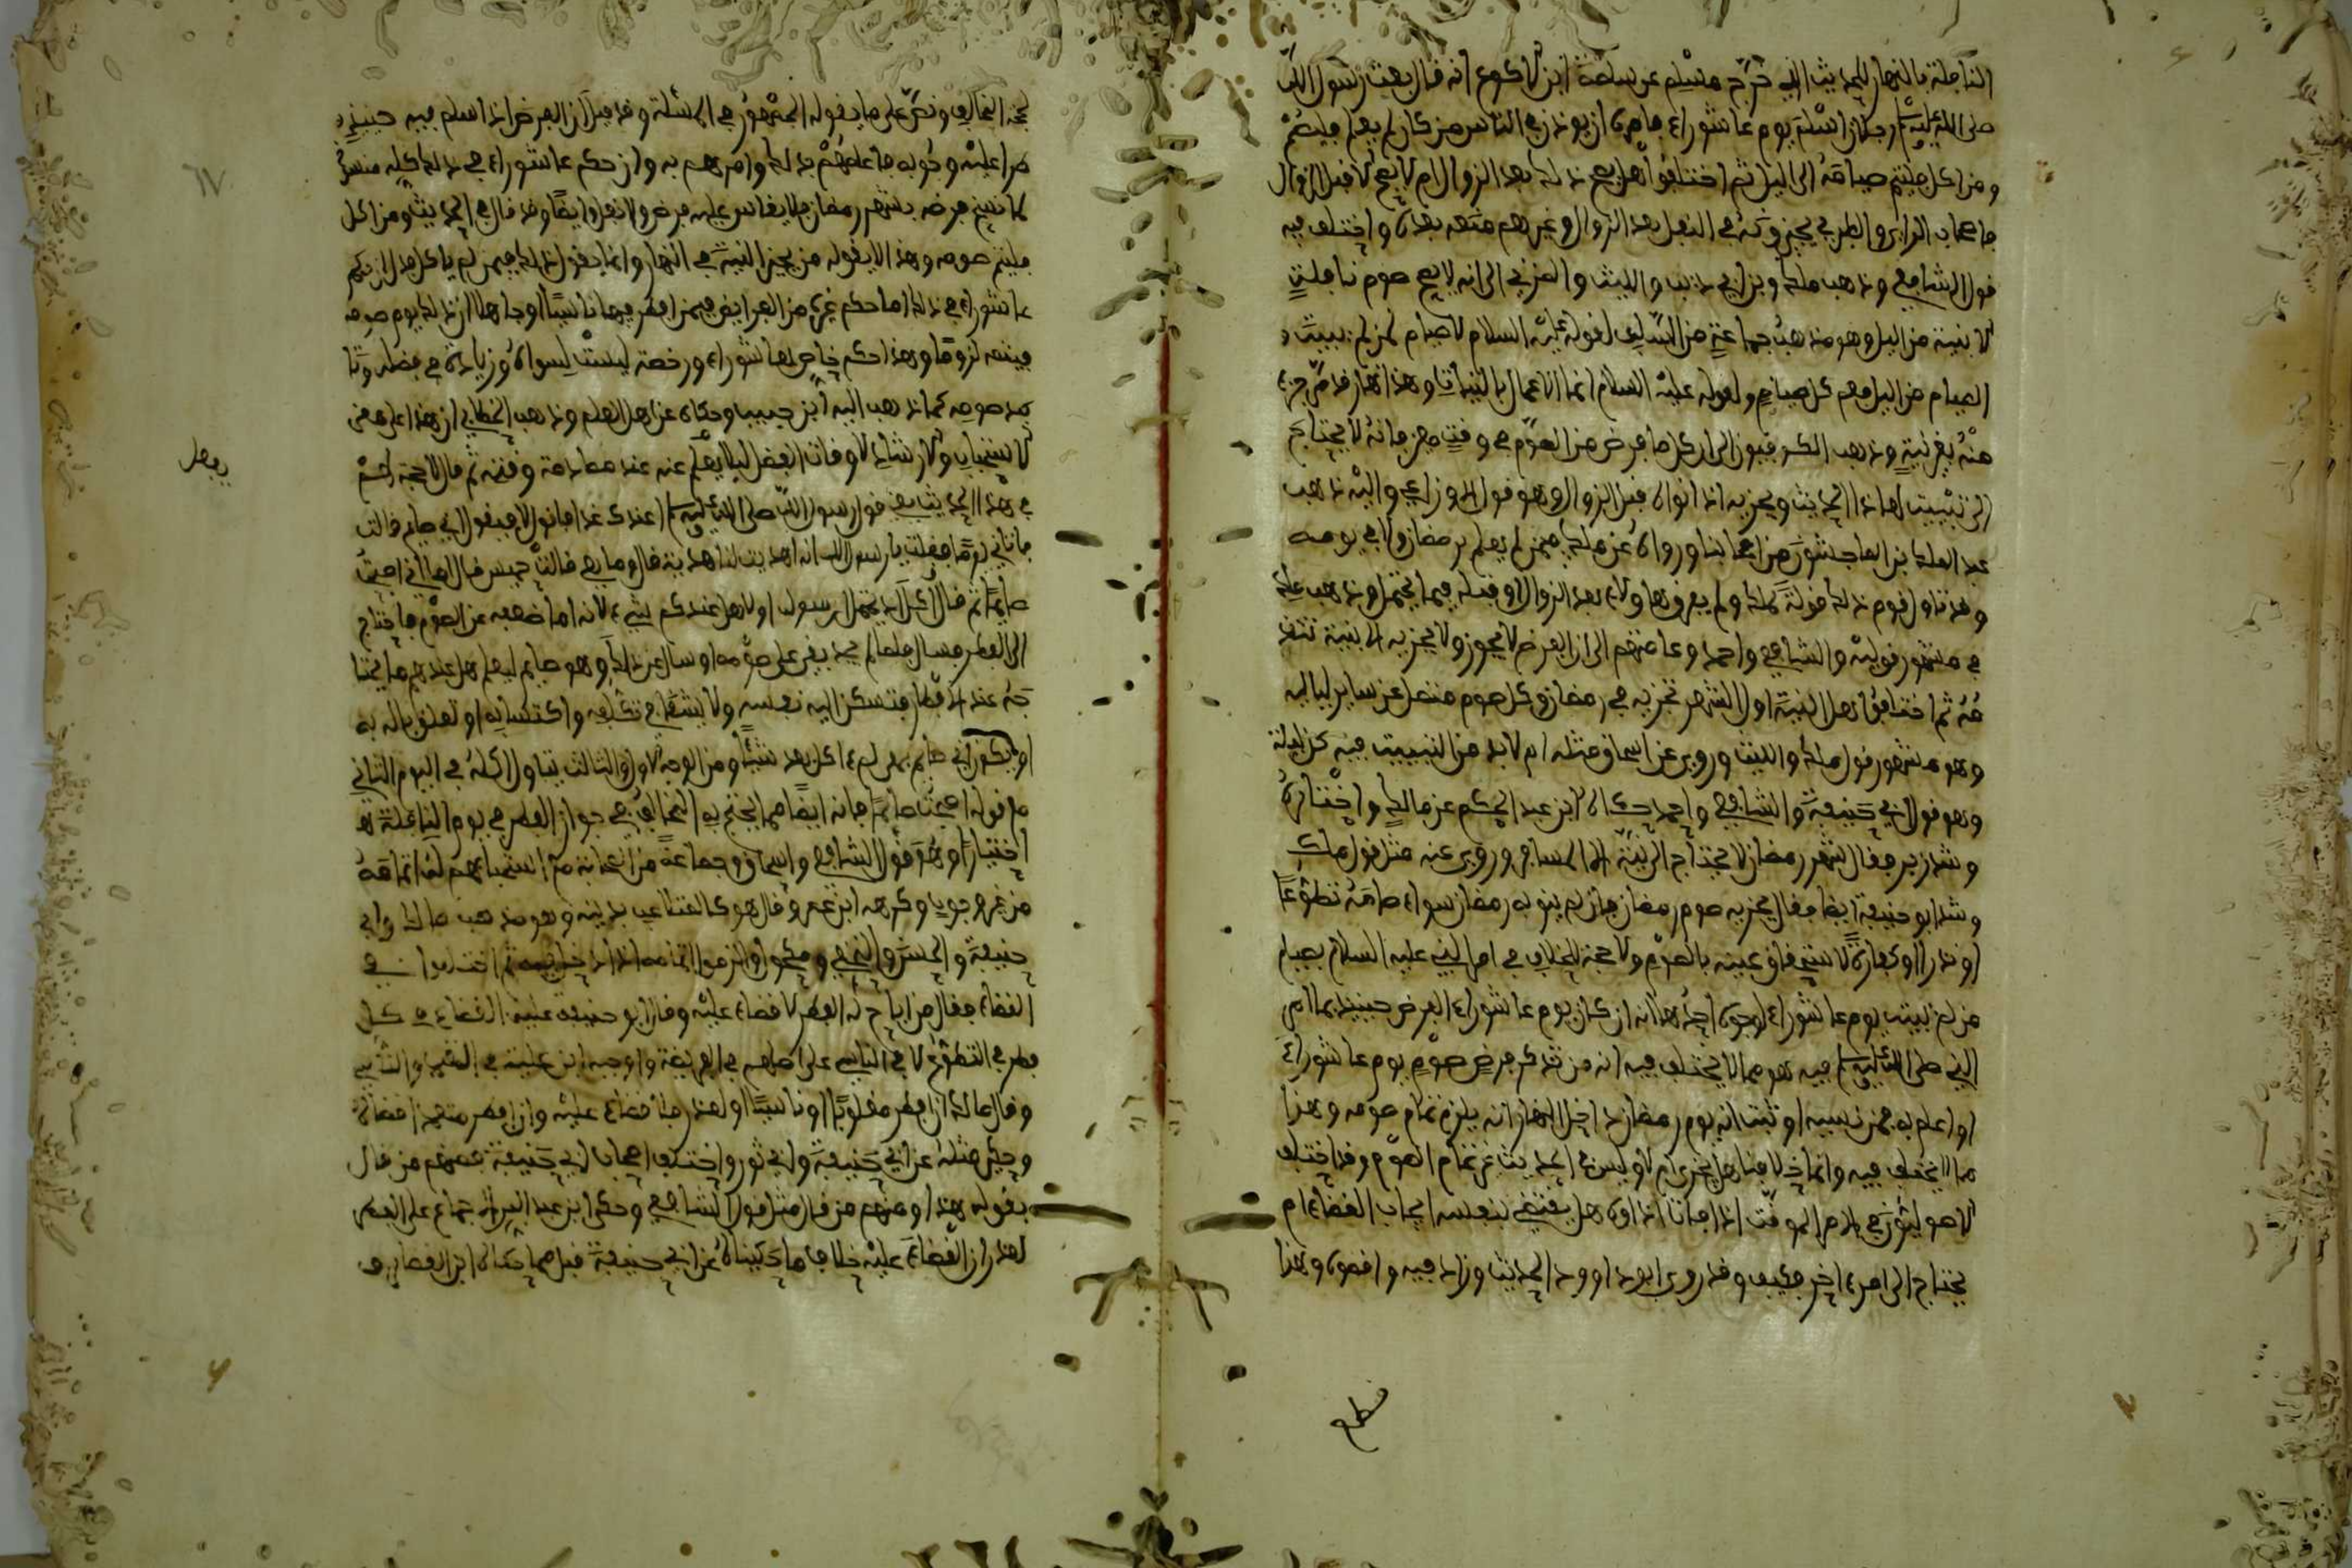 النافلة بالنهار للحديث الذي خرّج مسلم عن سلمة ابن الاكوع انه قال بعث رسول الله
صلى الله عليه وسلم رجلا من اسلم يوم عاشوراء فامره ان يوذن في الناس من كان لم يصم فليصم
ومن اكل فليتم صيامه الى الليل ثم اختلفوا هل يصح ذلك بعد الزوال ام لا يصح الا قبل الزوال
فاصحاب الراي والطبري يجيزونه في النفل بعد الزوال وغيرهم منعه بعده واختلف فيه
قول الشافعي وذهب ملك وبن ابي ذيب والليث والمزني الى انه لا يصح صوم نافلة
الا بنية من الليل وهو مذهب جماعة من السلف لقوله عليه السلام لا صيام لمن لم يبيت
الصيام من الليل فعم كل صيام ولقوله عليه السلام انما الاعمال بالنيات وهذا نهار قد مر جزء
منه بغير نية وذهب الكوفيون الى ان كل ما فرض من الصوم في وقت معين فانه لا يحتاج
الى تبييت لهذا الحديث ويجزيه اذا نواه قبل الزوال وهو قول الاوزاعي واليه ذهب
عبد الملك بن الماجشون من اصحابنا ورواه عن ملك فيمن لم يعلم برمضان الا في يومه
وقد تاول قوم ذلك قولة لملك ولم يفرقوا ولا بعد الزوال او قبله فيما يحتمل وذهب ملك
في مشهور قوليه والشافعي واحمد وعامتهم الى ان الفرض لا يجوز ولا يجزيه الا بنية تتقد
مه ثم اختلفوا هل النية اول الشهر تجزيه في رمضان وكل صوم متصل عن ساير لياليه
وهو مشهور قول ملك والليث وروي عن اسحاق مثله ام لا بد من التبييت فيه كل ليلة
وهو قول ابي حنيفة والشافعي واحمد حكاه ابن عبد الحكم عن مالك واختاره
وشذ زفر فقال شهر رمضان لا يحتاج الى نية الا المسافر وروي عنه مثل قول ملك
وشذ ابو حنيفة ايضا فقال يجزيه صوم رمضان وان لم ينو به رمضان سواء صامه تطوعا
او نذرا او كفارة لاستحقاق عينه بالصوم ولا حجة للمخالف في امر النبي عليه السلام بصيام
من لم يبيت يوم عاشوراء لوجوه احدها انه ان كان يوم عاشوراء الفرض حينيذ بما امر
النبي صلى الله عليه وسلم فيه هو مما لا يختلف فيه انه من تذكر فرض صوم يوم عاشوراء
او اعلم به فمن نسيه او ثبت انه يوم رمضان داخل النهار انه يلزم تمام صومه وهذا
مما لا يختلف فيه وانما خلافنا هل يجزى ام لا وليس في الحديث غير تمام الصوم وقد اختلف
الاصوليون في الامر الموقت اذا فات اداوه هل يقتضي بنفسه ايجاب القضاء ام
يحتاج الى امر اخر فكيف وقد روى ابو داوود الحديث وزاد فيه واقضوه وهذا
قطع
لحجة المخالف ونص على ما يقوله الجمهور في المسئلة وقد قيل ان الفرض اذا اسلم فيه حينيذ
طرا عليه وجوبه فاعلمهم بذلك وامرهم به وان حكم عاشوراء في ذلك كله منسوخ
كما نسخ فرضه بشهر رمضان فلا يقاس عليه فرض ولا نفل وايضا وقد قال في الحديث ومن اكل
فليتم صومه وهذا لا يقوله من يجيز النية في النهار وانما يقول ذلك فيمن لم ياكل
عاشوراء في ذلك اما حكم غيره من الفرايض فيمن افطر فيها ناسيا او جاهلا ان ذلك يوم صومه
فيتمه لزوما وهذا حكم خاص لعاشوراء ورخصة ليست لسواه وزيادة في فضله
بعد صومه كما ذهب اليه ابن حبيب وحكاه عن اهل العلم وذهب الخطابي ان هذا على معنى
الاستحباب والارشاد لاوقات الفضل ليلا يغفل عنه عند مصادفة وقته ثم قال لا حجة لهم
في هذا الحديث يعني قول رسول الله صلى الله عليه وسلم اعندك غدا فاقول لا فيقول اني صايم قالت
فاتاني يوما فقلت يا رسول الله انه اهديت لنا هدية قال وما هي قالت حيس قال اما اني اصبحت
صايما ثم قال اكل
الى الفطر فسال
جه عند الافطار فتسكن اليه نفسه ولا يشتغل في تكلفه واكتسابه او تعلق باله به
او يكون اني صايم بمعنى لم اكل بعد شيئا ومن الوجه الاول والثالث يتاول اكله في اليوم الثاني
مع قوله اصبحت صايما فانه ايضا مما يحتج به المخالف في جواز الفطر في يوم النافلة
اختيارا وهو قول الشافعي واسحاق وجماعة من الصحابة مع استحبابهم له اتمامه
من غير وجوب وكرهه ابن عمر وقال هو كالمتلاعب بدينه وهو مذهب مالك وابي
حنيفة والحسن والنخعي ومكحول والزموا اتمامه اذا دخل فيه ثم اختلفوا في
القضاء فقال من اباح له الفطر لا قضاء عليه وقال ابو حنيفة عليه القضاء في كل
فطر في التطوع الا في الناسي على اصلهم في الفريضة واوجبه ابن علية في المتعمد والناسي
وقال مالك ان افطر مغلوبا او ناسيا او لعذر فلا قضاء عليه وان افطر متعمدا قضاه
وحكي مثله عن ابي حنيفة وابي ثور واختلف اصحاب ابي حنيفة فمنهم من قال
بقوله هذا ومنهم من قال مثل قول الشافعي وحكى ابن عبد البر الاجماع على المفطر
لعذر ان لا قضاء عليه خلاف ما حكيناه عن ابي حنيفة قبل مما حكاه ابن القصار